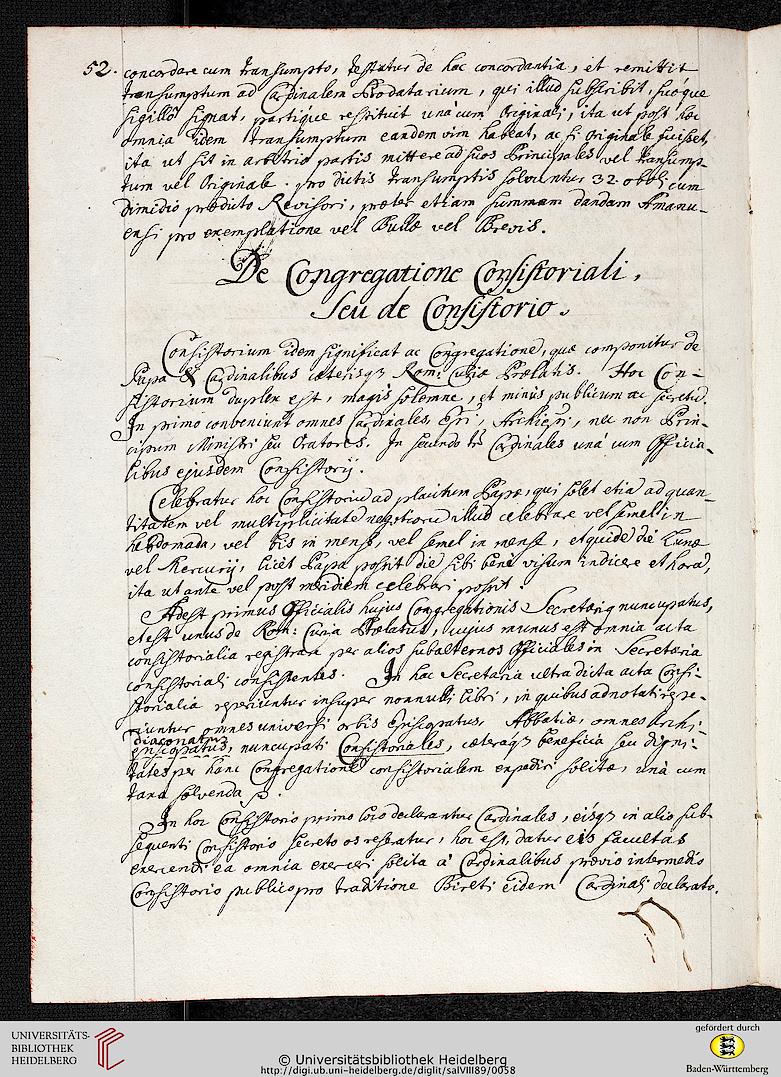 52. concordare cum transumpto, testatur de hac concordantia, et remittit
transumptum ad Cardinalem Prodatarium, qui illud subscribit, suóque
sigillo signat, partique restituit unàcum Originali, ita ut post hoc
omnia idem transumptum eandem vim habeat, ac si originale fuisset,
ita ut sit in arbitrio partis mittere ad suos Principales vel transump-
tum vel Originale. pro dictis transumptis solvuntur 32 oboli cum
dimidio prædicto Revisori, præter etiam summam dandam Amanu-
ensi pro exemplatione vel Bullæ vel Brevis.
De Congregatione Consistoriali,
seu de Consistorio.
Consistorium idem significat ac Congregatione, quæ componitur de
Papa & Cardinalibus cæterisq3 Rom: Curiæ Prælatis. Hoc Con-
sistorium duplex est, magis solemne, et minùs publicum ac secretū.
In primo conveniunt omnes Cardinales, Epī, Archiepī, nec non Prin-
cipum Ministri seu Oratores. In secundo Cardinales unà cum Officia-
libus ejusdem Consistorij.
Celebratur hoc Consistoriū ad placitum Papæ, qui solet etiā ad quan-
titatem vel multiplicitatē negotiorū illud celebrare vel semel in
hebdomada, vel bis in mense, vel semel in mense, et quidē die Lunæ
vel Mercurij, licèt Papa possit diē sibi benè visum indicere et horā,
ita ut ante vel post meridiem celebrari possit.
Adest primus Officialis hujus Congregationis Secretarius nuncupatus,
et est unus de Rom: Curia Prælatus, cujus munus est omnia acta
consistorialia registrare per alios subalternos Officiales in Secretaria
consistoriali consistentes. In hac Secretaria ultra dicta acta Consi-
storialia reperiuntur insuper nonnulli libri, in quibus adnotati repe-
riuntur omnes universi orbis Episcopatus, Abbatiæ, omnes Archi-
diaconatus
episcopatus, nuncupati Consistoriales, cæteraq3 beneficia seu digni-
tates per hanc Congregationē consistorialem expediri solitæ, unà cum
taxa solvenda
In hoc Consistorio primo loco declarantur Cardinales, eisq3 in alio sub-
sequenti Consistorio secreto os reseratur, hoc est, datur eis facultas
exercendi ea omnia exerceri solita à Cardinalibus prævio intermedio
Consistorio publico pro traditione Bireti eidem Cardinali declarato.
UNIVERSITÄTS-
BIBLIOTHEK
HEIDELBERG
© Universitätsbibliothek Heidelberg
http://digi.ub.uni-heidelberg.de/diglit/salVIII89/0058
gefördert durch
Baden-Württemberg